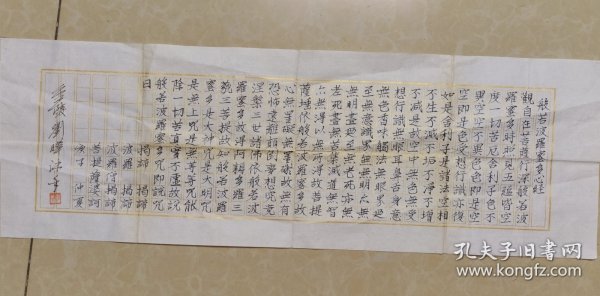 般若波羅蜜多心經
觀自在菩薩行深般若波
羅蜜多時照見五蘊皆空
度一切苦厄舍利子色不
異空空不異色色即是空
空即是色受想行識亦復
如是舍利子是諸法空相
不生不滅不垢不淨不增
不減是故空中無色無受
想行識無眼耳鼻舌身意
無色香味觸法無眼界乃
至無意識界無無明亦無
無明盡乃至無老死亦無
老死盡無苦集滅道無智
亦無得以無所得故菩提
薩埵依般若波羅蜜多故
心無罣礙無罣礙故無有
恐怖遠離顛倒夢想究竟
涅槃三世諸佛依般若波
羅蜜多故得阿耨多羅三
藐三菩提故知般若波羅
蜜多是大神咒是大明咒
是無上咒是無等等咒能
除一切苦真實不虛故說
般若波羅蜜多咒即說咒
曰
揭諦 揭諦
波羅 揭諦
波羅僧揭諦
菩提薩婆訶
庚子 仲夏
孔夫子旧書网
www.kongfz.com